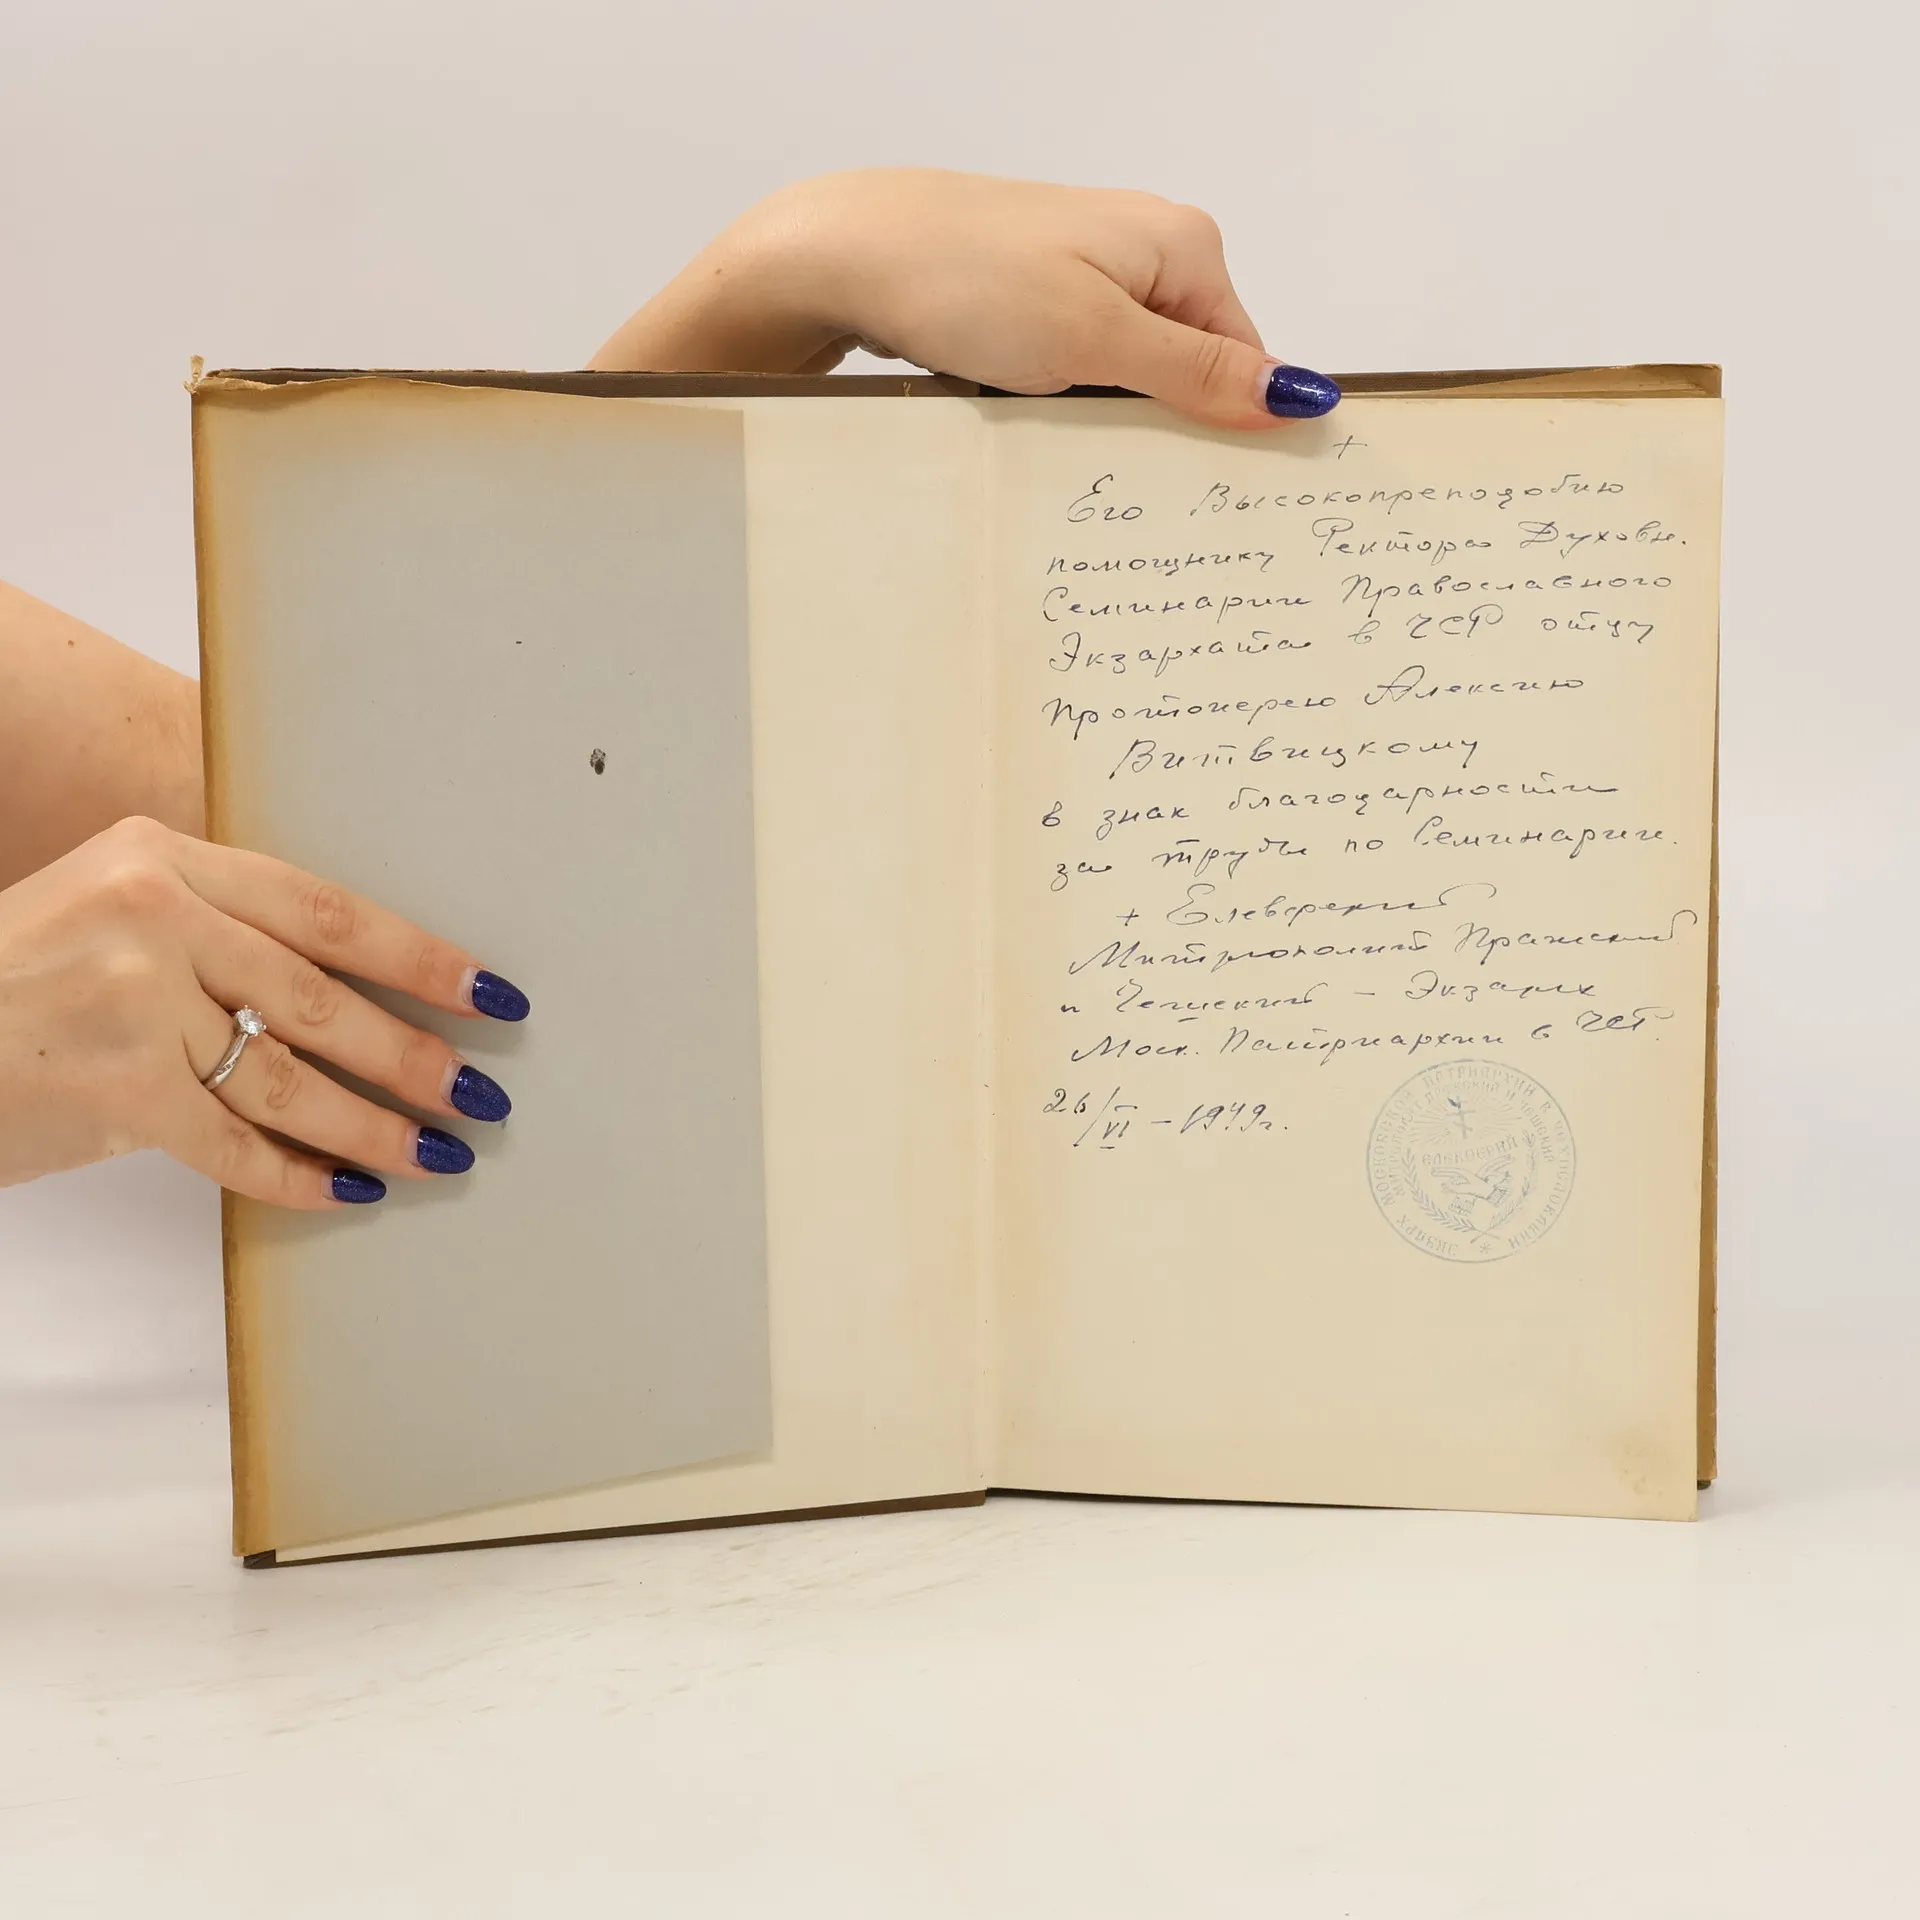 +
Его Высокопреподобию
помощнику Ректора Духовн.
Семинарии Православного
Экзархата в ЧСР отцу
Протоиерею Алексию
Витвицкому
в знак благодарности
за труды по Семинарии.
+ Елевферий
Митрополит Пражский
и Чешский – Экзарх
Моск. Патриархии в ЧСР.
26/VI – 1949г.
ЭКЗАРХ МОСКОВСКОЙ ПАТРИАРХИИ В ЧЕХОСЛОВАКИИ
МИТРОПОЛИТ ПРАЖСКИЙ И ЧЕШСКИЙ
ЕЛЕВФЕРИЙ